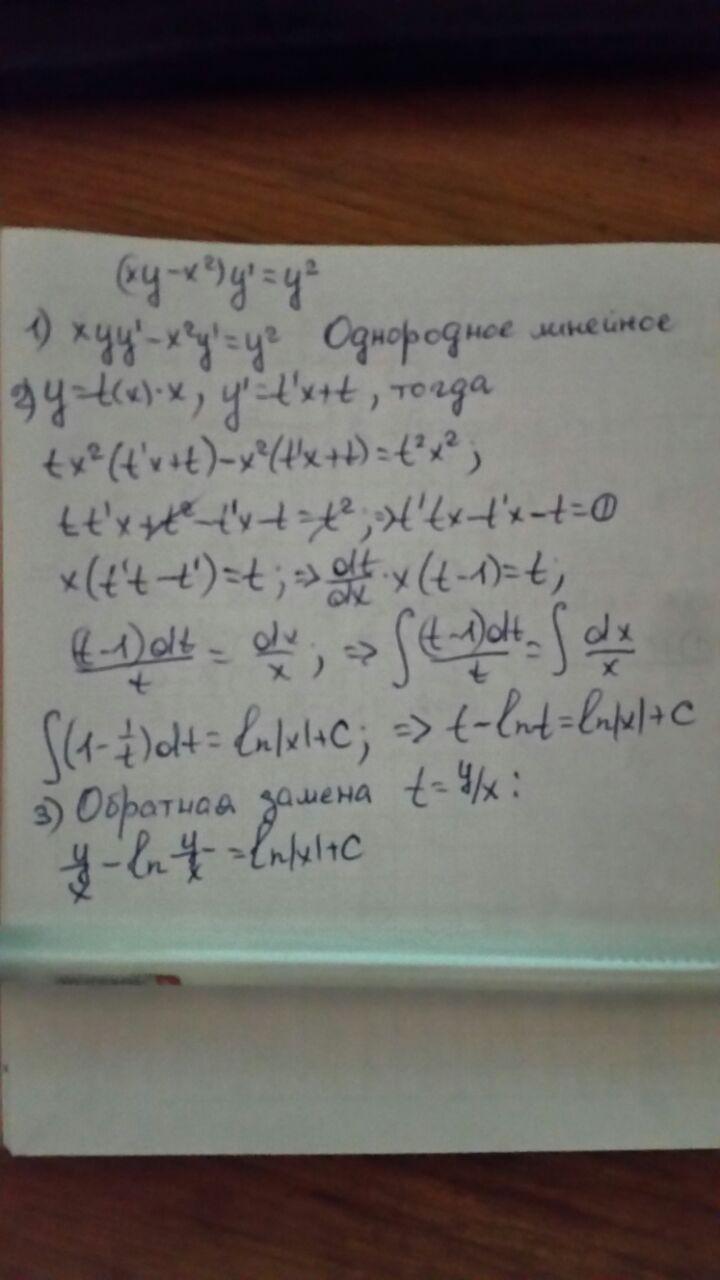 (xy-x²)y'=y²
1) xyy'-x²y'=y² Однородное линейное
2) y=t(x)·x, y'=t'x+t, тогда
tx²(t'x+t)-x²(t'x+t)=t²x²;
tt'x+t²-t'x-t=t²; => t'tx-t'x-t=0
x(t't-t')=t; => dt/dx·x(t-1)=t;
(t-1)dt/t = dx/x; => ∫(t-1)dt/t = ∫dx/x
∫(1-1/t)dt=ln|x|+C; => t-lnt=ln|x|+C
3) Обратная замена t=y/x:
y/x-ln y/x=ln|x|+C